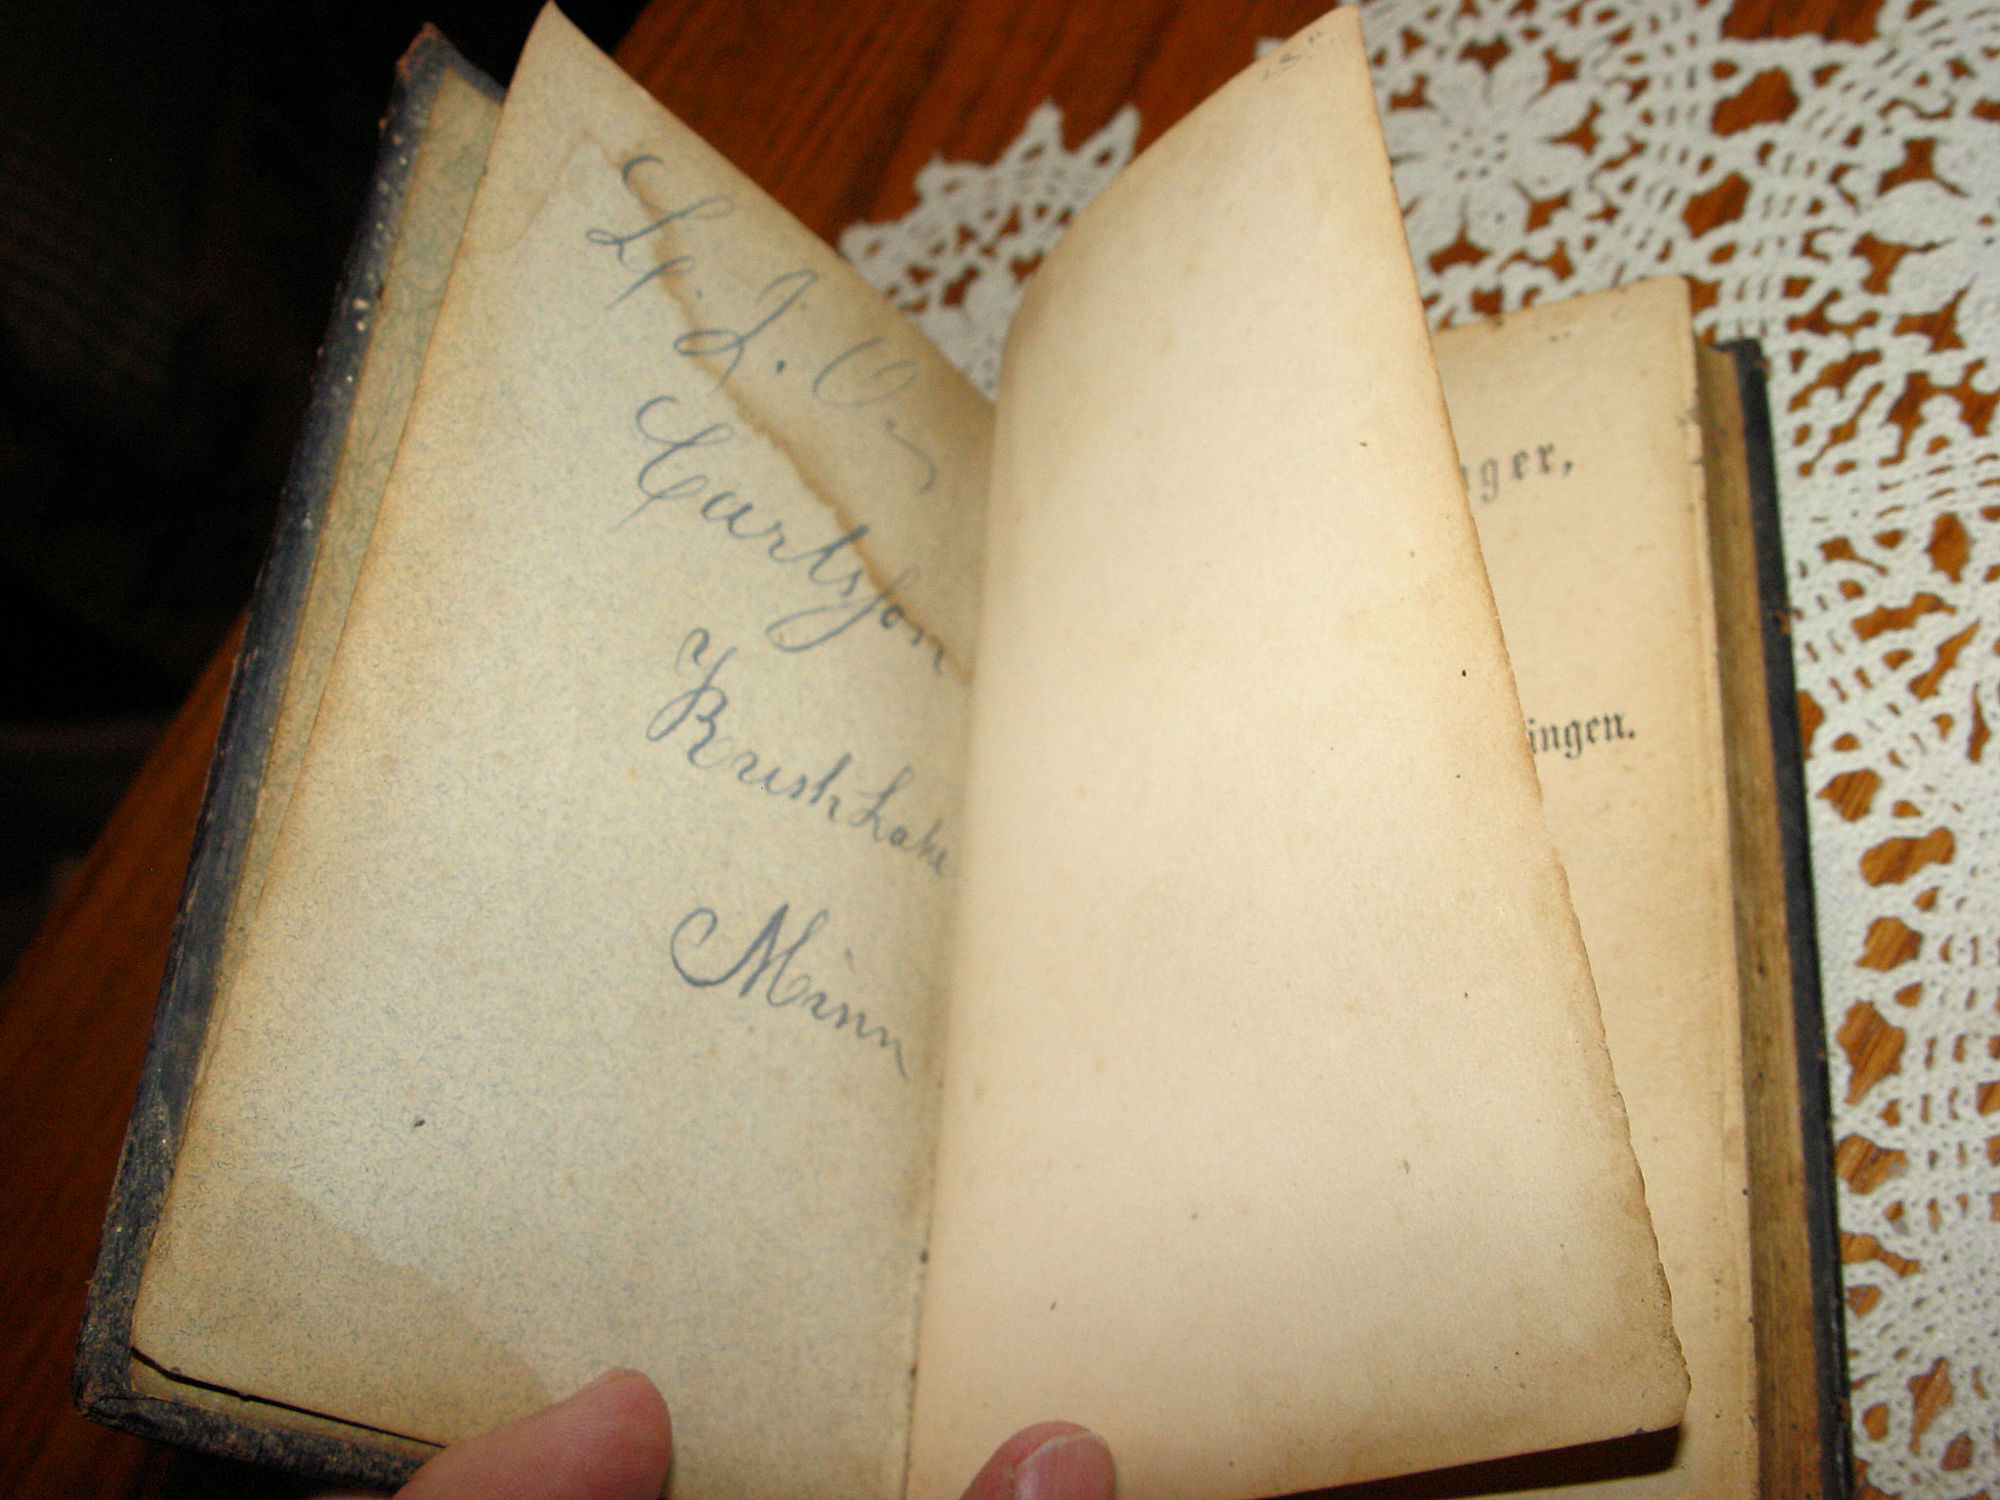 J. O.
Carlsson
Rush Lake
Minn
nger,
ingen.